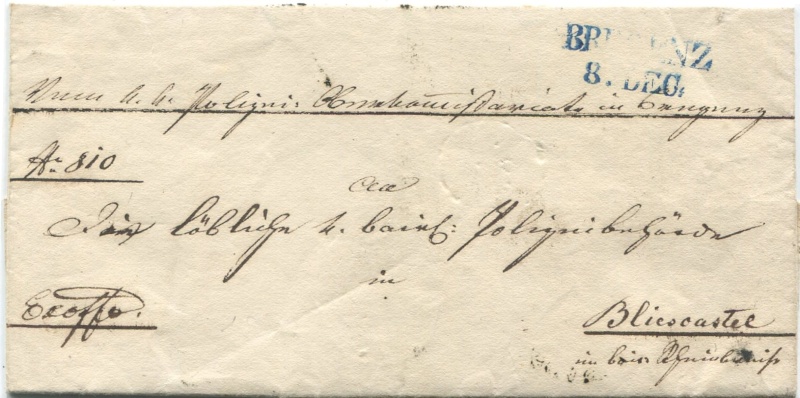 BREGENZ
8. DEC.
Vom k. k. Polizei: Oberkommissariate in Bregenz
Nr. 810
An
Die löbliche k. bairs: Polizeibehörde
in
Exoffo.
Bliescastel
im bair. Rheinkreise